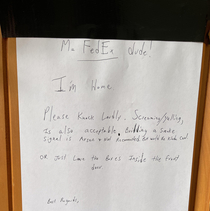 Mr FedEx dude!
I'm Home
Please Knock Loudly. Screaming/yelling,
Is also acceptable. Building a smoke
signal is and Recommended But would be kinda Cool
OR Just Leave the Boxes Inside the front
door
Best Regards,